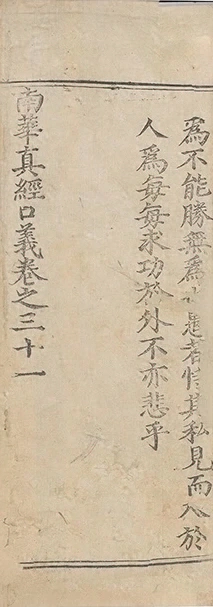 為不能勝無為也是者恃其私見而入於
人為每每求功於外不亦悲乎
南華真經口義卷之三十一